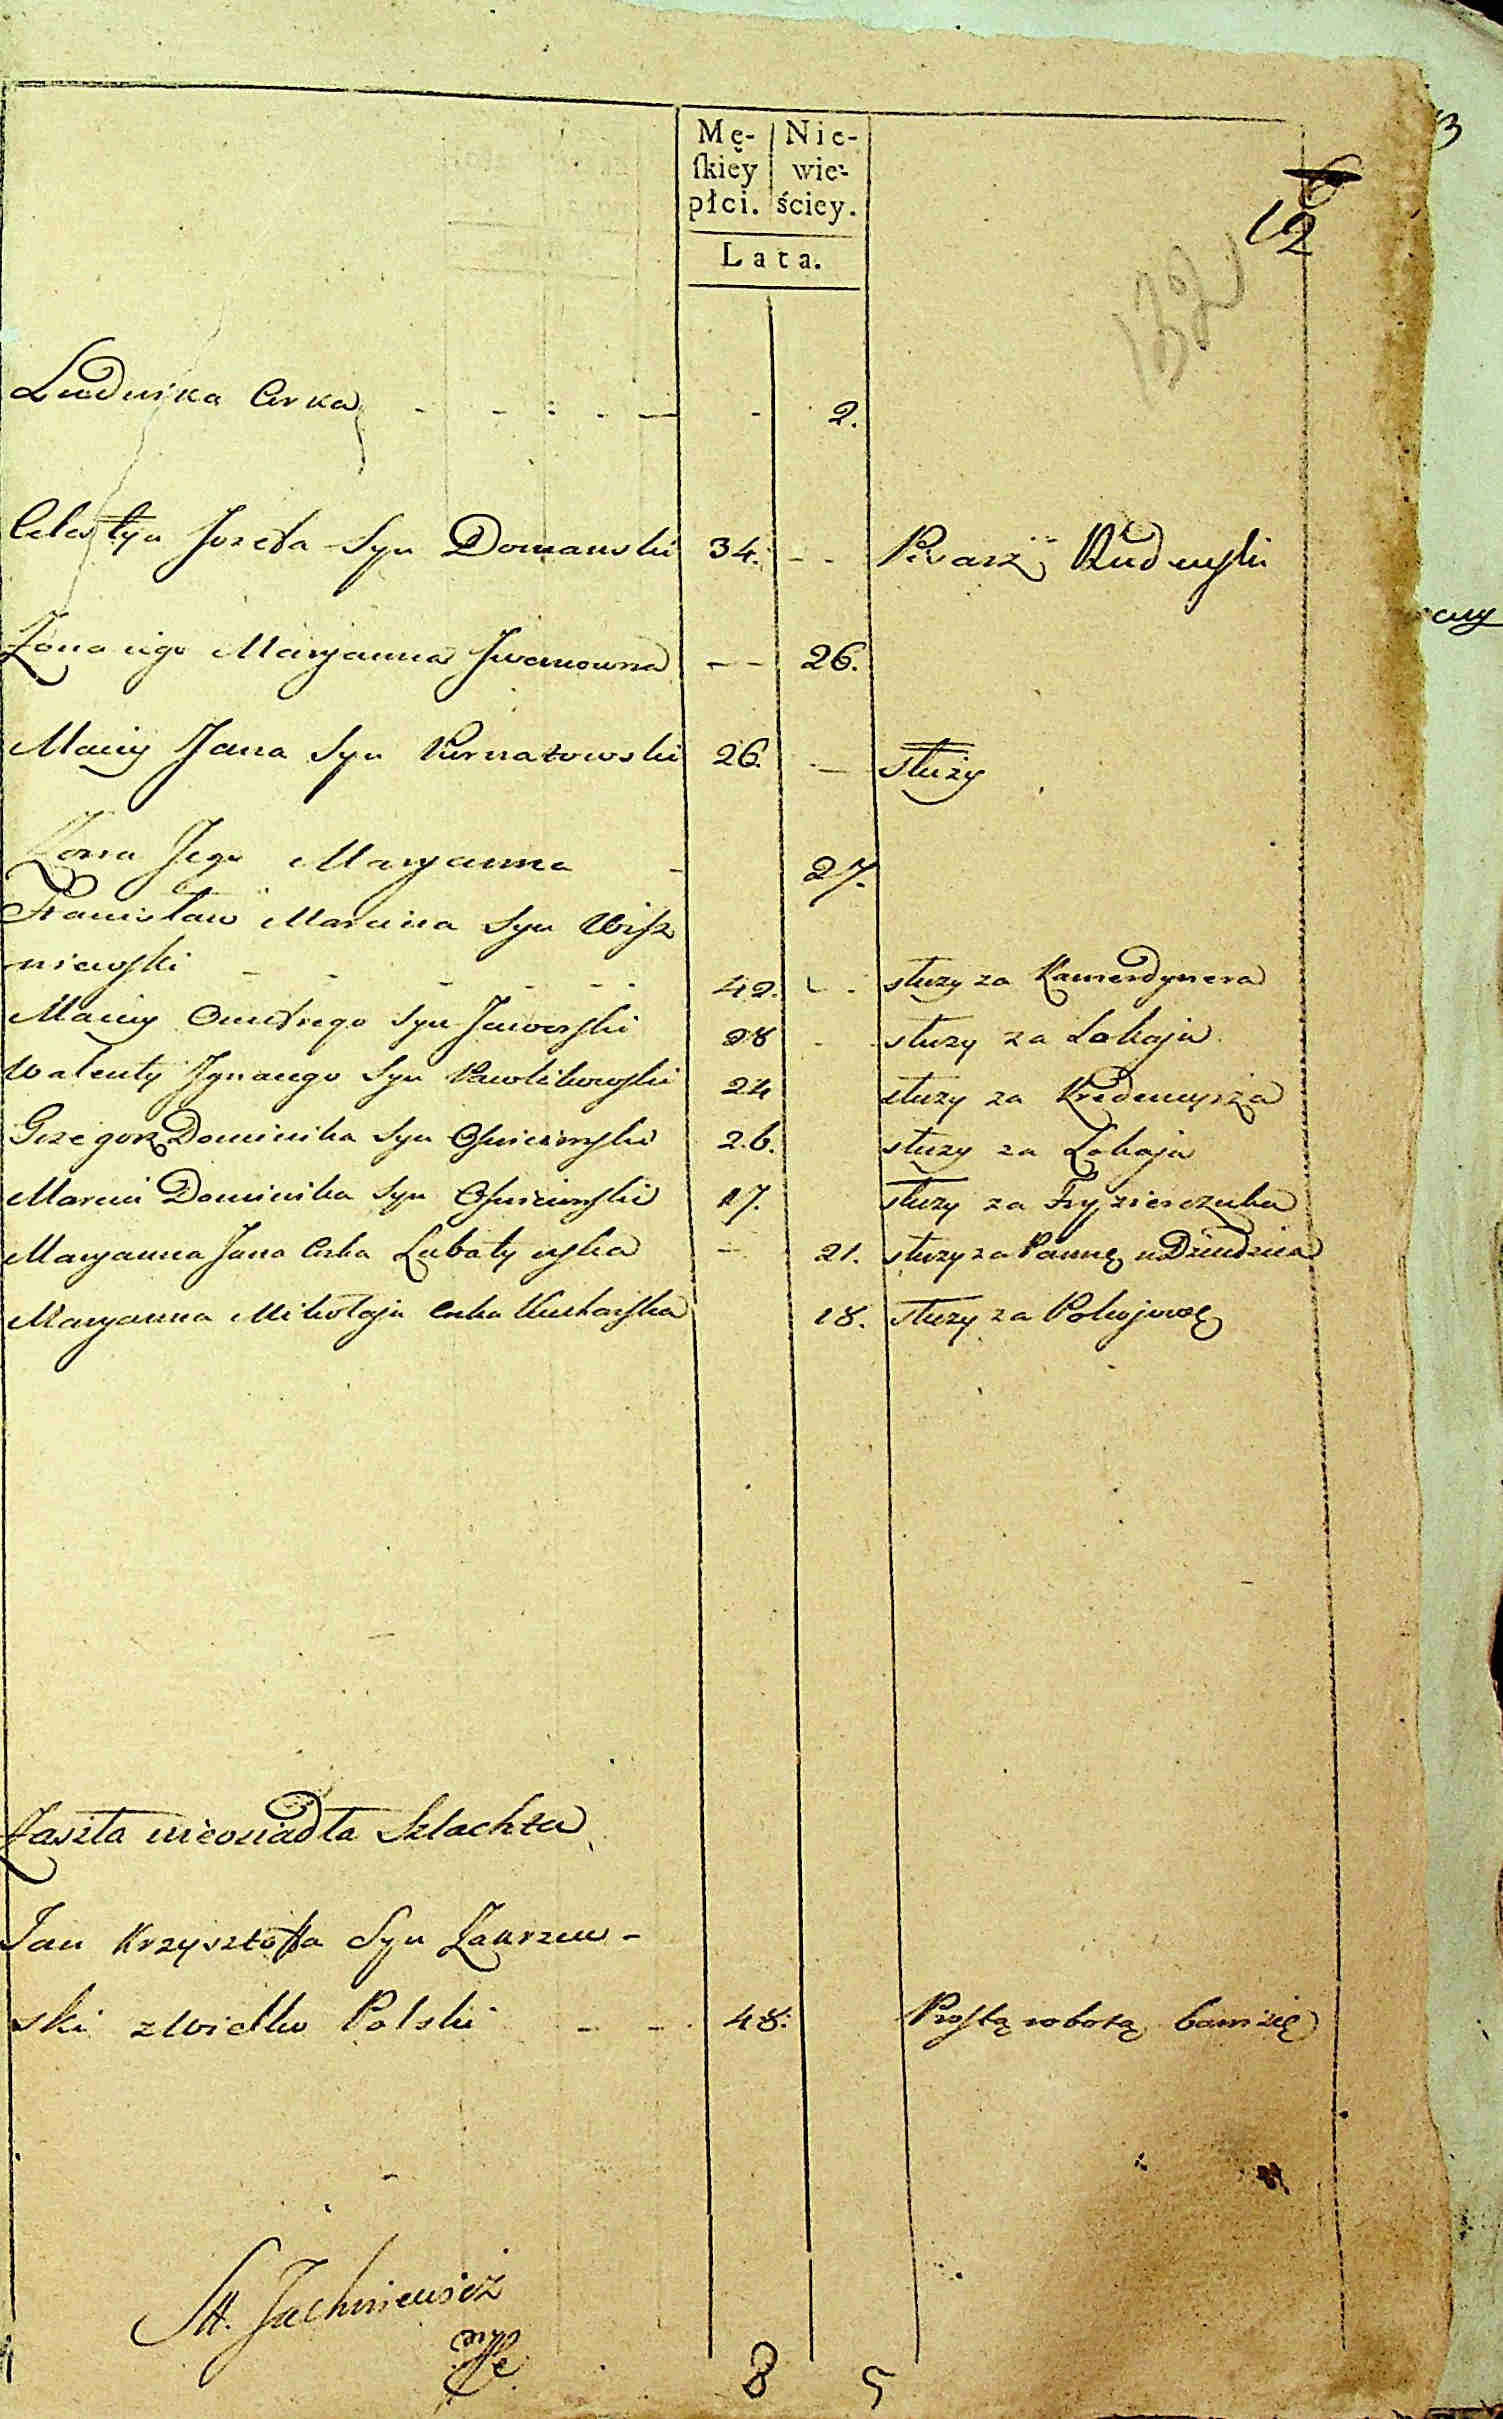 Mę- Nie-
ſkiey wie-
płci. ściey.
Lata.
6
12
Ludwika Corka - - - - - 2.
Celestyn Jozefa Syn Domanski 34. - - Pisarz
Zona iego Maryanna Iwanowna - - 26.
Maciy Jana Syn Kurnatowski 26. - służy
Zona Jego Maryanna - 27.
Stanisław Marcina Syn Wisz
niewski - - - - - 42. - - służy za Kamerdynera
Maciy Onufrego Syn Jaworski 28 - - służy za Lokaja
Walenty Ignacego Syn Pawlikowski 24 służy za Kredencyrza
Grzegorz Dominika Syn 26. służy za Lokaja
Marcin Dominika Syn 17. służy za Fryzierczuka
Maryanna Jana Corka Lubatyńska - 21. służy za Pannę u Dziedzica
Maryanna Mikołaja Corka Kucharska 18. służy za Pokojową
Zaszła nieosiadła Szlachta
Jan Krzysztofa Syn Zakrzew-
ski z Wielko Polski - - 48. Prostą robotą bawi się
St. Jachniewicz
8 5